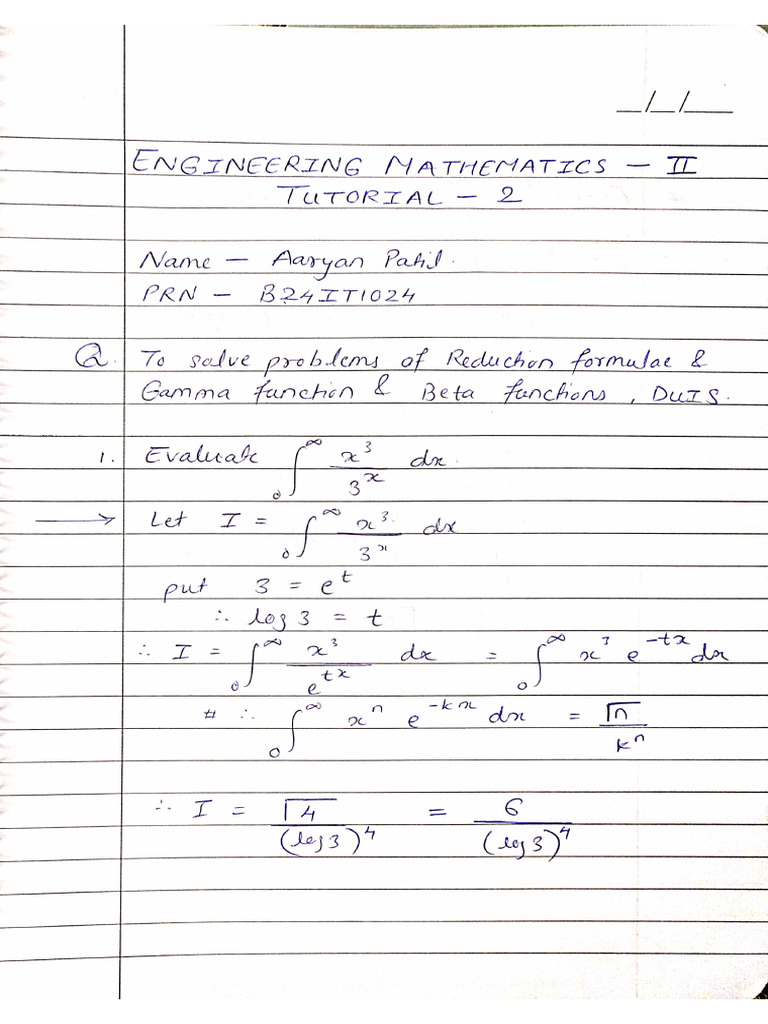 _/_/__
ENGINEERING MATHEMATICS - II
TUTORIAL - 2
Name - Aaryan Patil.
PRN - B24IT1024
Q. To solve problems of Reduction formulae &
Gamma function & Beta functions, DUIS.
1. Evaluate ∫₀^∞ x³/3ˣ dx.
→ Let I = ∫₀^∞ x³/3ˣ dx
put 3 = eᵗ
∴ log 3 = t
∴ I = ∫₀^∞ x³/e^(tx) dx = ∫₀^∞ x³ e^(-tx) dx
# ∴ ∫₀^∞ xⁿ e^(-kx) dx = Γn/kⁿ
∴ I = Γ4/(log 3)⁴ = 6/(log 3)⁴